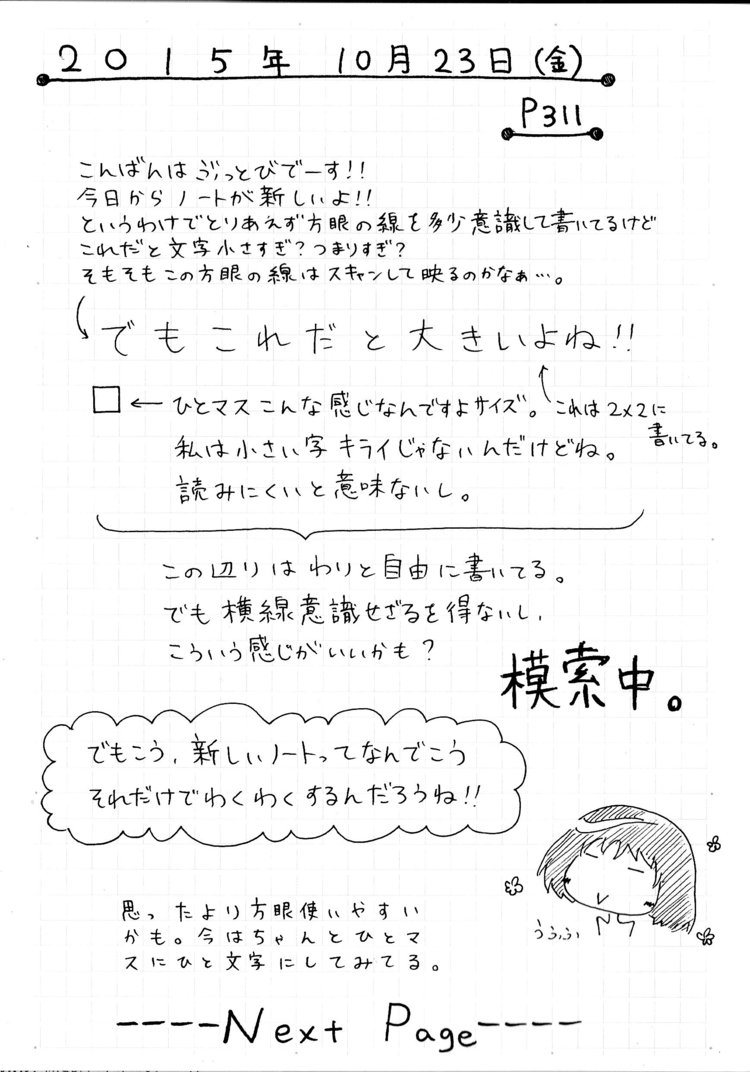 2015年 10月23日(金)
P311
こんばんは ぶっとびでーす!!
今日から ノートが新しいよ!!
というわけでとりあえず方眼の線を多少意識して書いてるけど
これだと文字小さすぎ?つまりすぎ?
そもそもこの方眼の線はスキャンして映るのかなぁ…。
でもこれだと大きいよね!!
□ ← ひとマス こんな感じなんですよサイズ。
これは2×2に
書いてる。
私は小さい字 キライじゃないんだけどね。
読みにくいと意味ないし。
この辺りは わりと自由に書いてる。
でも 横線意識せざるを得ないし、
こういう感じがいいかも?
模索中。
でもこう、新しいノートってなんでこう
それだけでわくわくするんだろうね!!
うふふ
思ったより方眼使いやすい
かも。今はちゃんとひとマ
スにひと文字にしてみてる。
----Next Page----